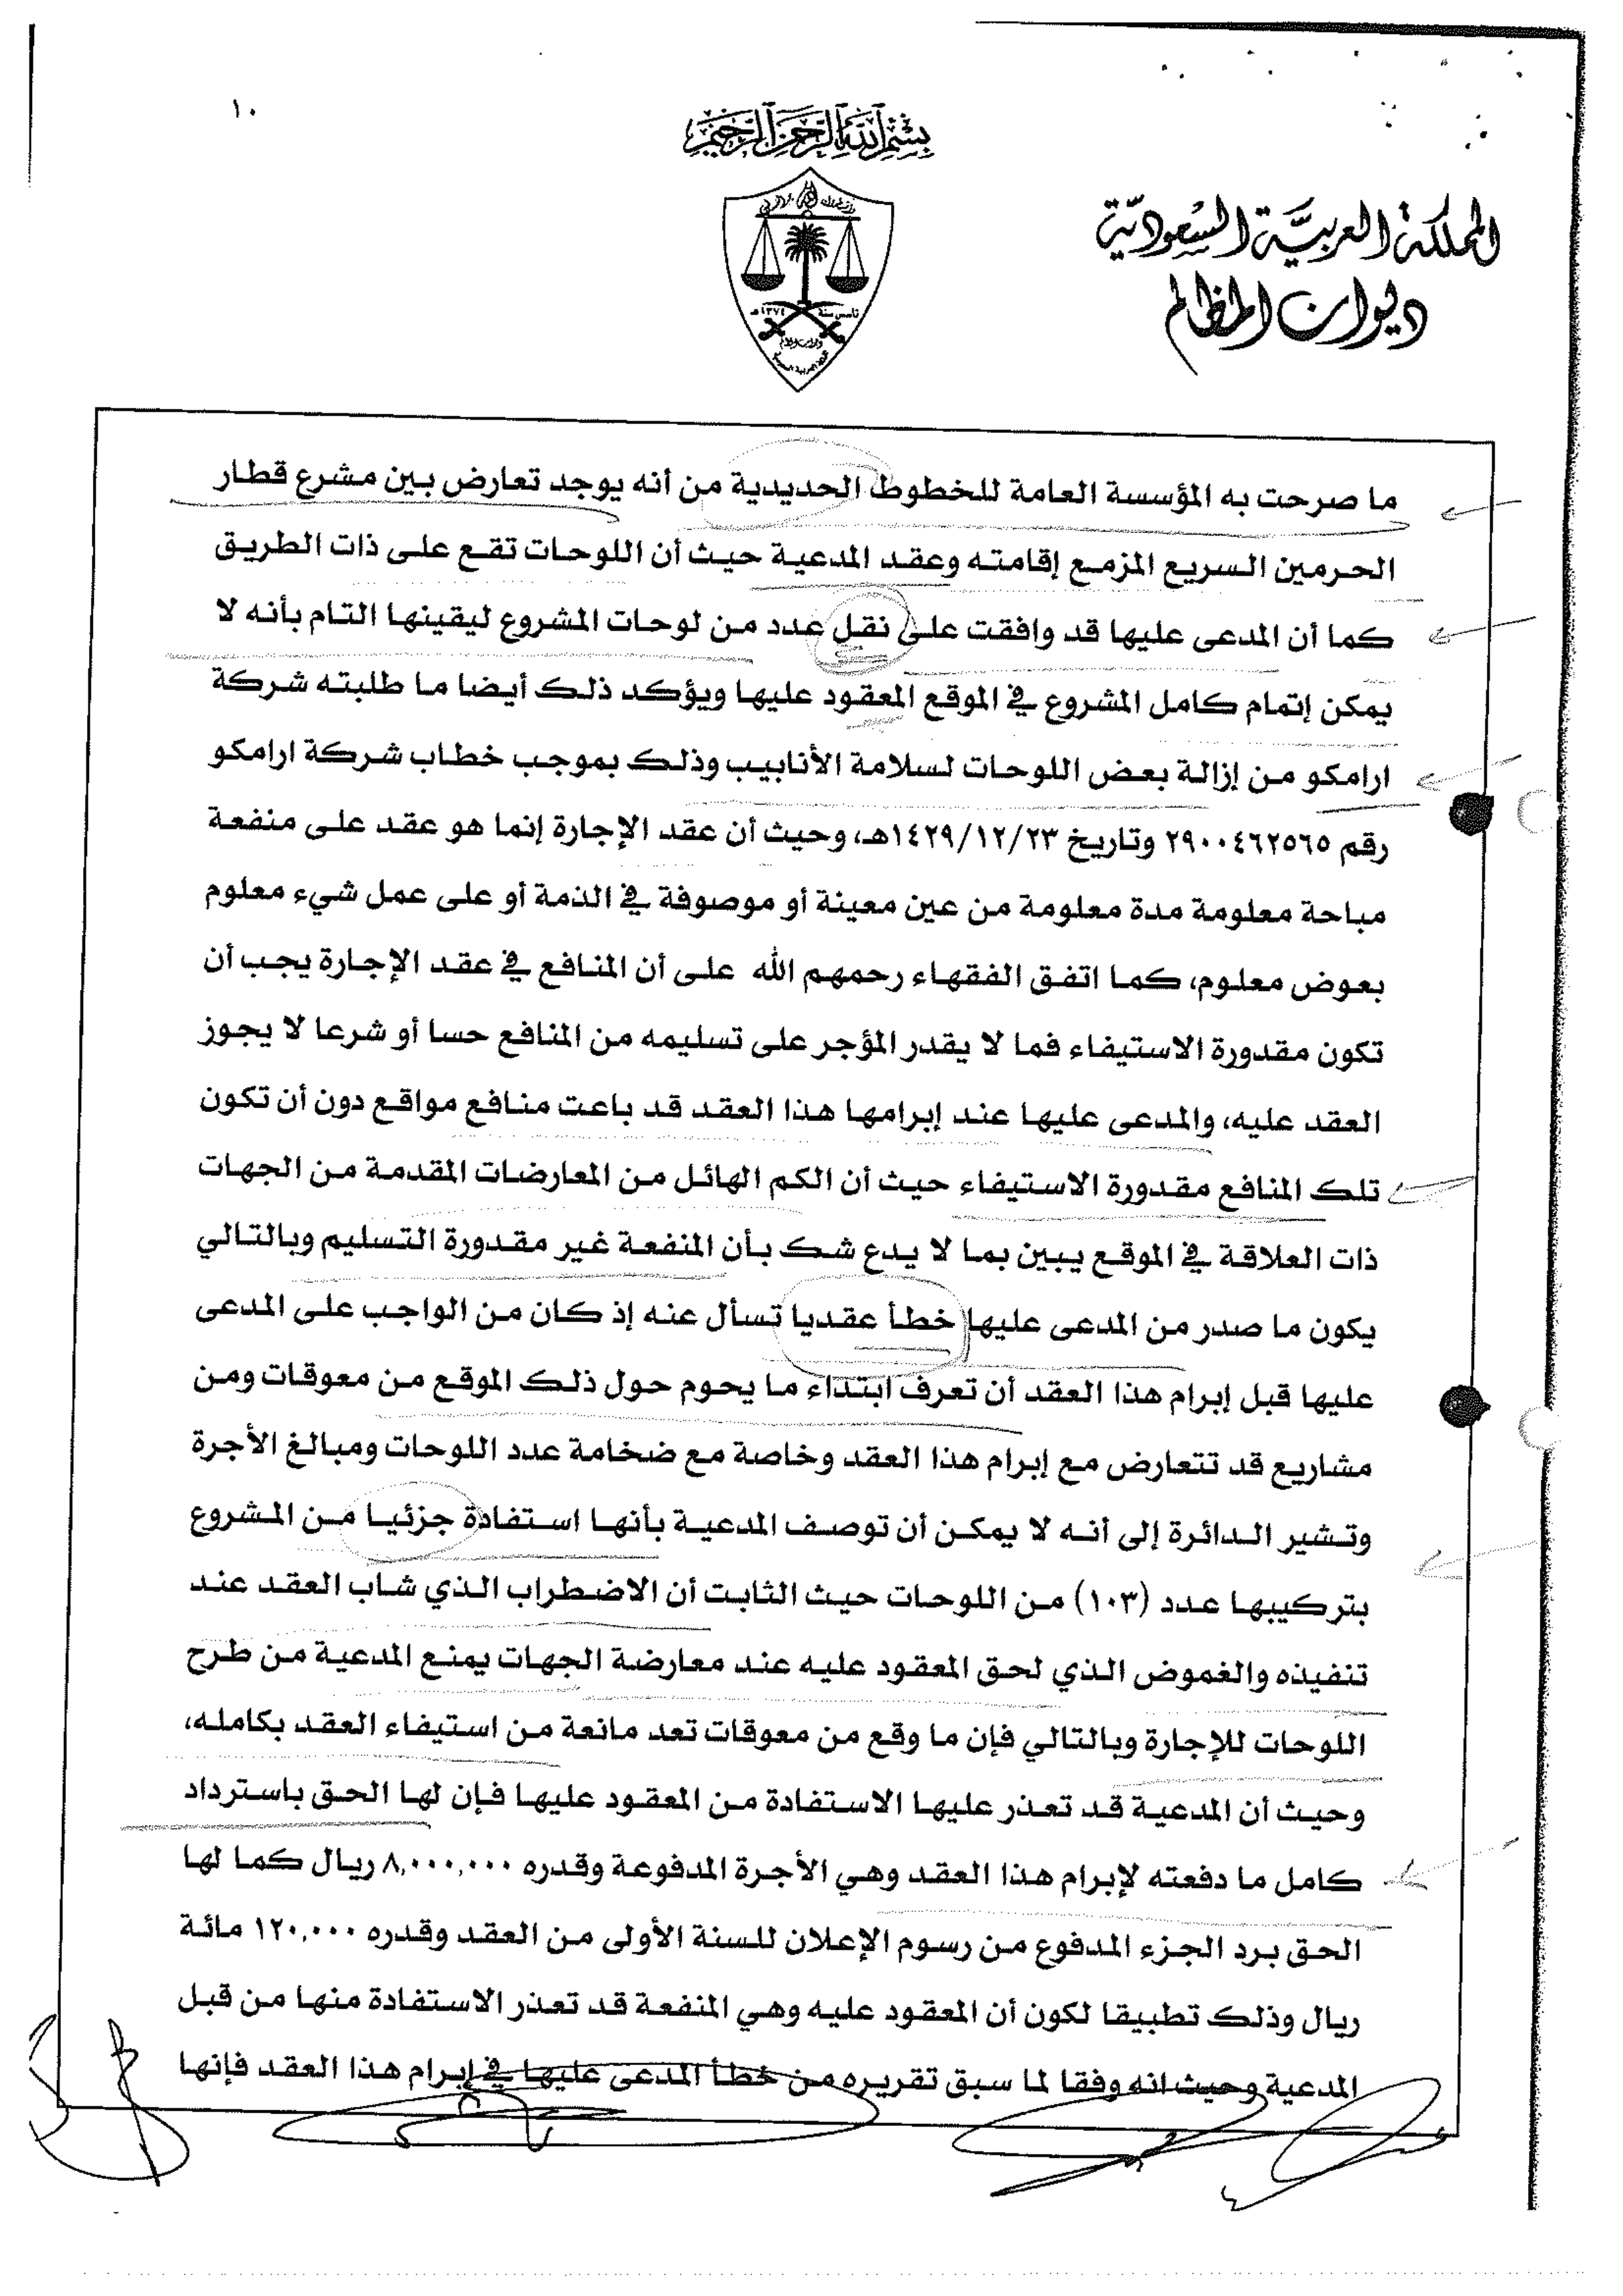 ١٠
بسم الله الرحمن الرحيم
المملكة العربية السعودية
ديوان المظالم
تأسس سنة ١٣٧٤هـ
ما صرحت به المؤسسة العامة للخطوط الحديدية من أنه يوجد تعارض بين مشرع قطار
الحرمين السريع المزمع إقامته وعقد المدعية حيث أن اللوحات تقع على ذات الطريق
كما أن المدعى عليها قد وافقت على نقل عدد من لوحات المشروع ليقينها التام بأنه لا
يمكن إتمام كامل المشروع في الموقع المعقود عليها ويؤكد ذلك أيضا ما طلبته شركة
ارامكو من إزالة بعض اللوحات لسلامة الأنابيب وذلك بموجب خطاب شركة ارامكو
رقم ٢٩٠٠٤٦٢٥٦٥ وتاريخ ١٤٢٩/١٢/٢٣هـ، وحيث أن عقد الإجارة إنما هو عقد على منفعة
مباحة معلومة مدة معلومة من عين معينة أو موصوفة في الذمة أو على عمل شيء معلوم
بعوض معلوم، كما اتفق الفقهاء رحمهم الله على أن المنافع في عقد الإجارة يجب أن
تكون مقدورة الاستيفاء فما لا يقدر المؤجر على تسليمه من المنافع حسا أو شرعا لا يجوز
العقد عليه، والمدعى عليها عند إبرامها هذا العقد قد باعت منافع مواقع دون أن تكون
تلك المنافع مقدورة الاستيفاء حيث أن الكم الهائل من المعارضات المقدمة من الجهات
ذات العلاقة في الموقع يبين بما لا يدع شك بأن المنفعة غير مقدورة التسليم وبالتالي
يكون ما صدر من المدعى عليها خطأ عقديا تسأل عنه إذ كان من الواجب على المدعى
عليها قبل إبرام هذا العقد أن تعرف ابتداء ما يحوم حول ذلك الموقع من معوقات ومن
مشاريع قد تتعارض مع إبرام هذا العقد وخاصة مع ضخامة عدد اللوحات ومبالغ الأجرة
وتشير الدائرة إلى أنه لا يمكن أن توصف المدعية بأنها استفادة جزئيا من المشروع
بتركيبها عدد (١٠٣) من اللوحات حيث الثابت أن الاضطراب الذي شاب العقد عند
تنفيذه والغموض الذي لحق المعقود عليه عند معارضة الجهات يمنع المدعية من طرح
اللوحات للإجارة وبالتالي فإن ما وقع من معوقات تعد مانعة من استيفاء العقد بكامله،
وحيث أن المدعية قد تعذر عليها الاستفادة من المعقود عليها فإن لها الحق باسترداد
كامل ما دفعته لإبرام هذا العقد وهي الأجرة المدفوعة وقدره ٨,٠٠٠,٠٠٠ ريال كما لها
الحق برد الجزء المدفوع من رسوم الإعلان للسنة الأولى من العقد وقدره ١٢٠,٠٠٠ مائة
ريال وذلك تطبيقا لكون أن المعقود عليه وهي المنفعة قد تعذر الاستفادة منها من قبل
المدعية وحيث انه وفقا لما سبق تقريره من خطأ المدعى عليها في إبرام هذا العقد فإنها